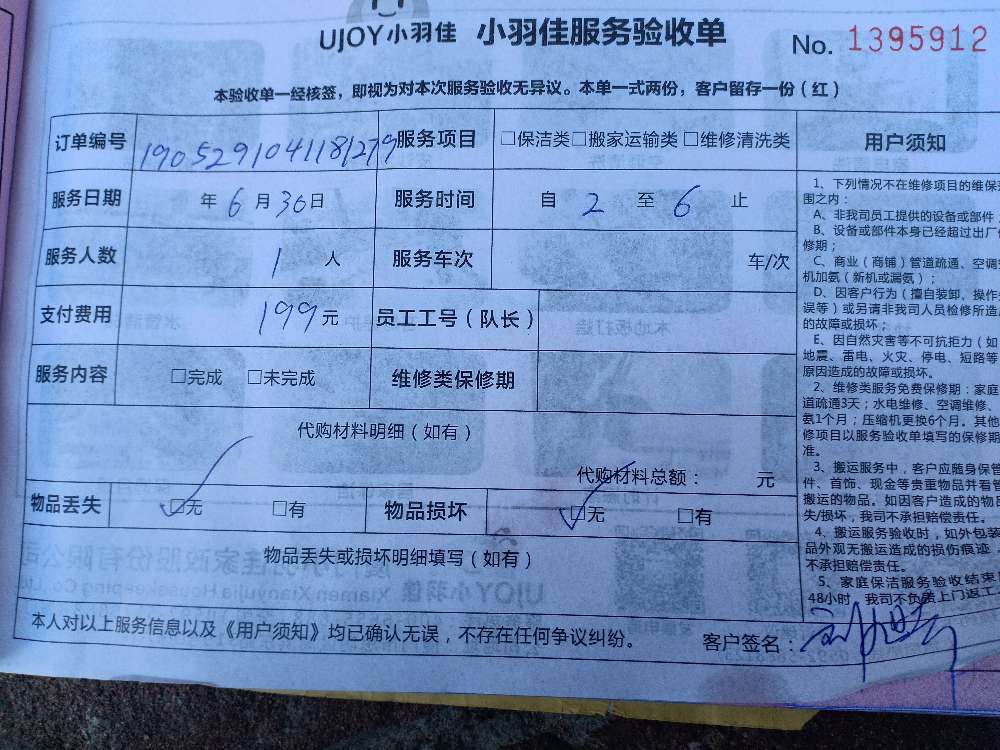 UJOY小羽佳 小羽佳服务验收单 No. 1395912
本验收单一经核签，即视为对本次服务验收无异议。本单一式两份，客户留存一份（红）
订单编号 1905291041181279 服务项目 □保洁类□搬家运输类 □维修清洗类
服务日期 年 6 月 30 日 服务时间 自 2 至 6 止
服务人数 1 人 服务车次 车/次
支付费用 199 元 员工工号（队长）
服务内容 □完成 □未完成 维修类保修期
代购材料明细（如有）
代购材料总额： 元
物品丢失 ☑无 □有 物品损坏 ☑无 □有
物品丢失或损坏明细填写（如有）
本人对以上服务信息以及《用户须知》均已确认无误，不存在任何争议纠纷。 客户签名：
用户须知
1、下列情况不在维修项目的维保
围之内：
A、非我司员工提供的设备或部件
B、设备或部件本身已经超过出厂
修期；
C、商业（商铺）管道疏通、空调
机加氨（新机或漏氨）；
D、因客户行为（擅自装卸、操作
误等）或另请非我司人员检修所造
的故障或损坏；
E、因自然灾害等不可抗拒力（如
地震、雷电、火灾、停电、短路等
原因造成的故障或损坏。
2、维修类服务免费保修期：家庭
道疏通3天；水电维修、空调维修、
氨1个月；压缩机更换6个月。其他
修项目以服务验收单填写的保修期
准。
3、搬运服务中，客户应随身保管
件、首饰、现金等贵重物品并看管
搬运的物品。如因客户造成的物
失/损坏，我司不承担赔偿责任。
4、搬运服务验收时，如外包装
品外观无搬运造成的损伤痕迹
不承担赔偿责任。
5、家庭保洁服务验收结束
48小时，我司不负责上门返工